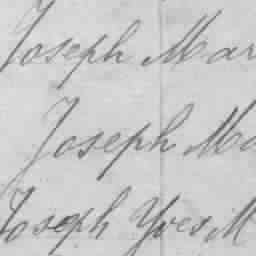 Joseph Mar
Joseph Ma
Joseph Yves M